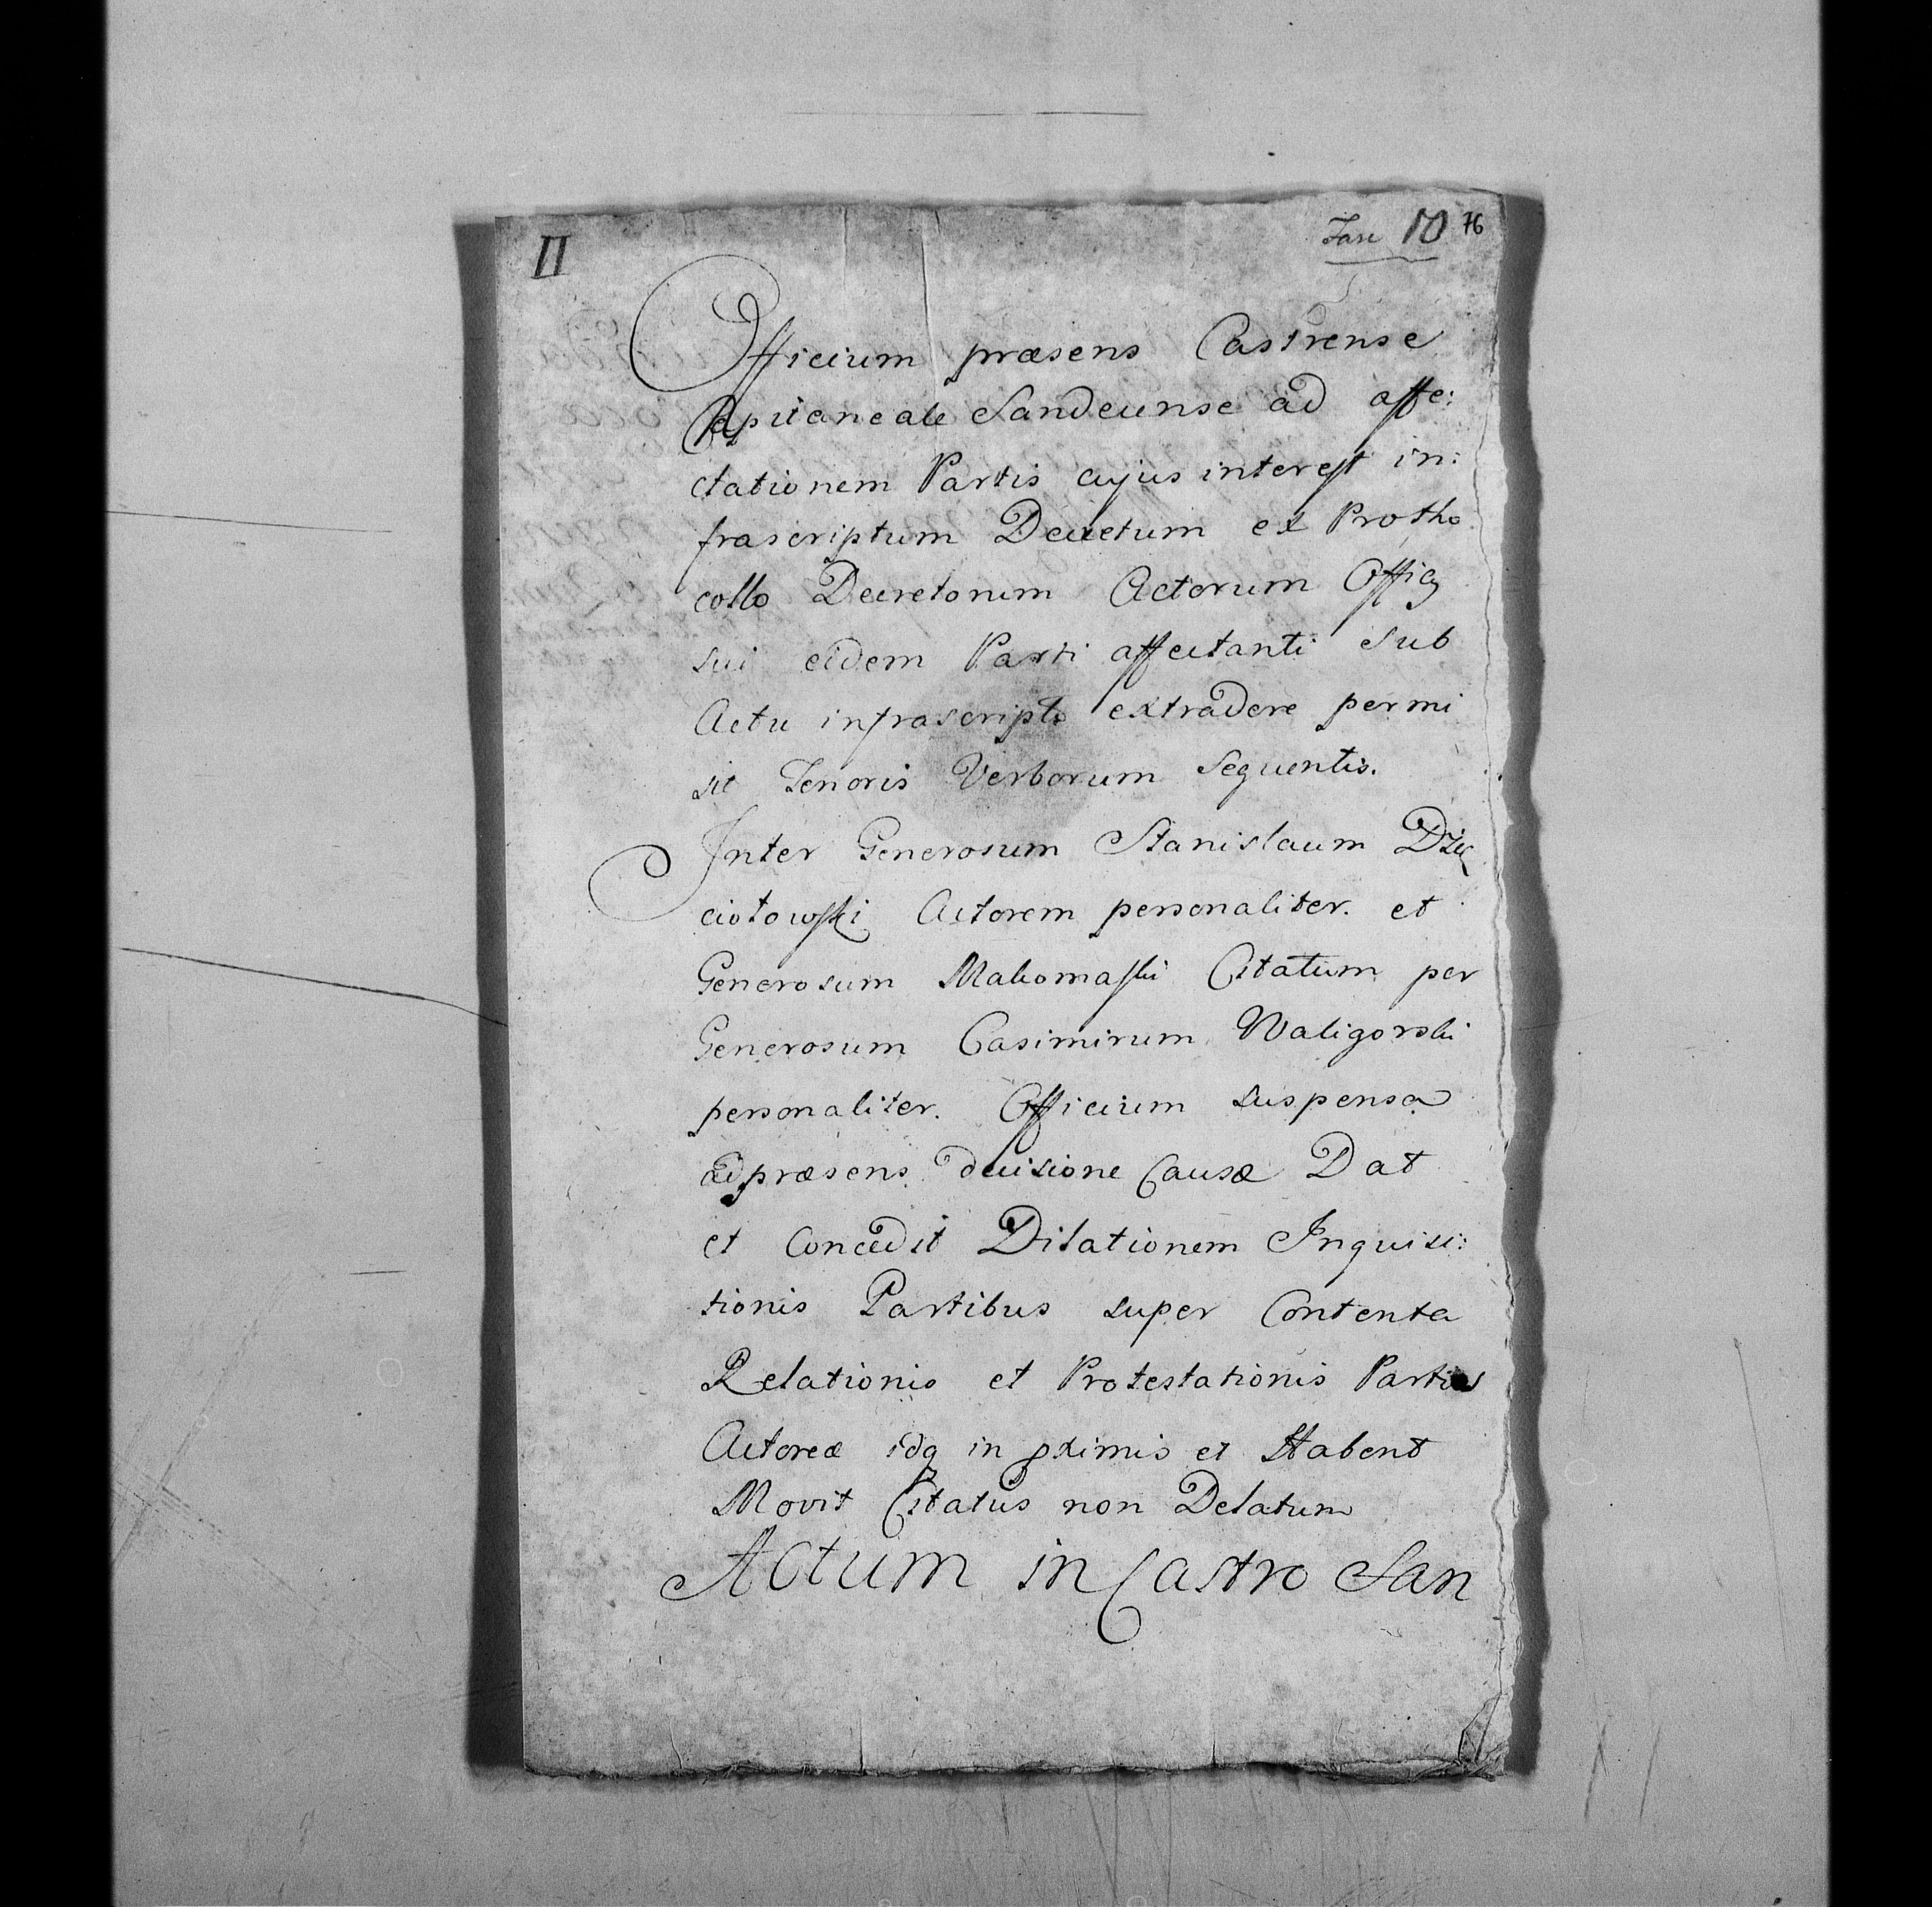 II
Fasc 10 76
Officium præsens Castrense
Capitaneale Sandecense ad affe:
ctationem Partis cujus interest in:
frascriptum Decretum ex Protho
collo Decretorum Actorum Officy
sui eidem Parti affectanti sub
Actu infrascripto extradere permi
sit Tenoris Verborum Sequentis.
Inter Generosum Stanislaum Dzię
ciołowski Actorem personaliter. et
Generosum Makomaski Citatum per
Generosum Casimirum Waligorski
personaliter. Officium suspensa
ad præsens decisione Causæ Dat
et Concedit Dilationem Inquisi:
tionis Partibus super Contenta
Relationis et Protestationis Partis
Actoreæ idq in pximis et Habent
Movit Citatus non Delatum
Actum in Castro San